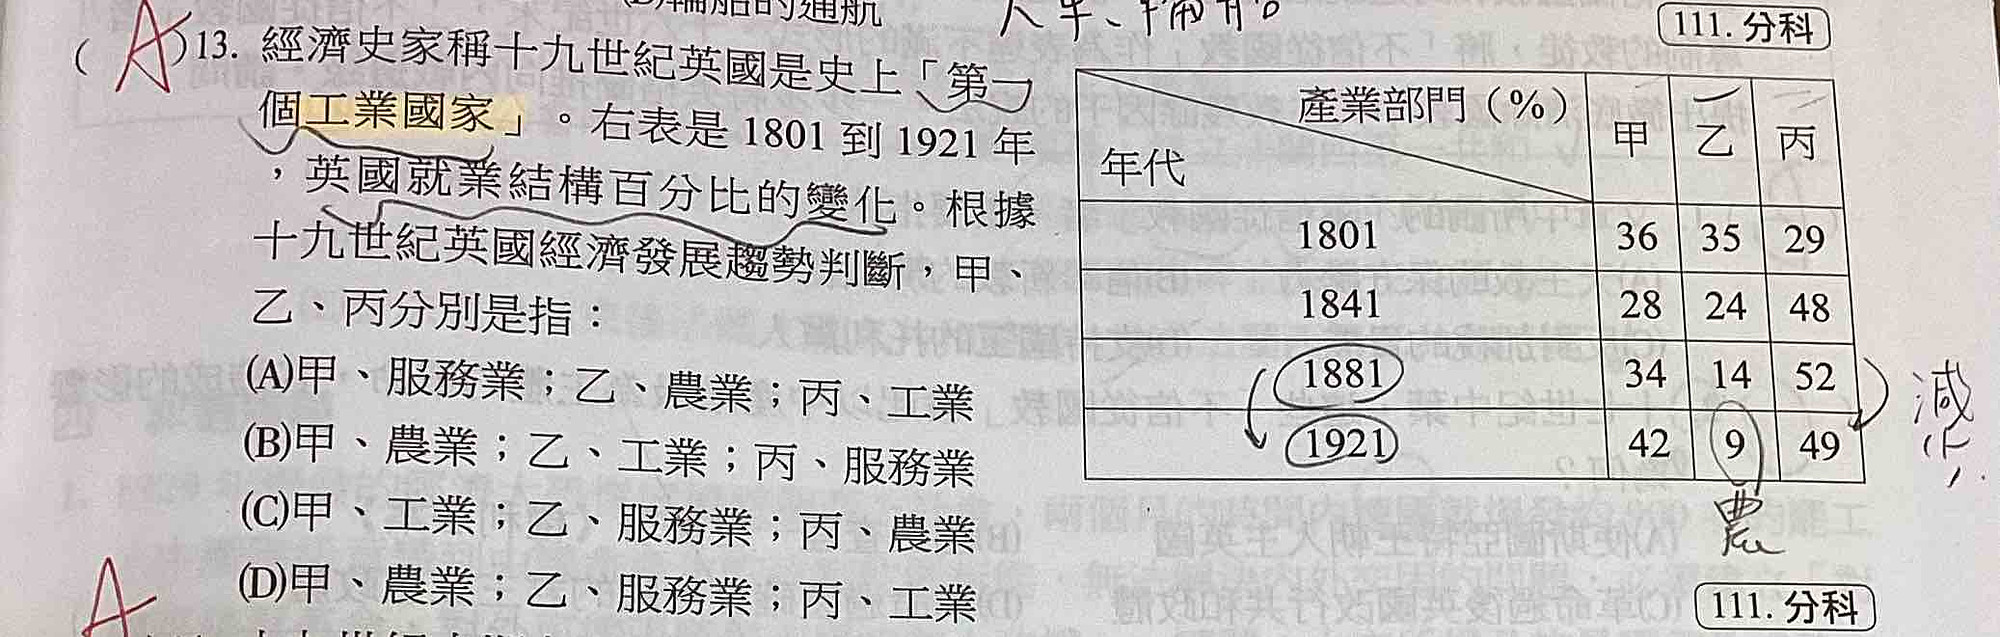 (D)輪船的通航
火車、輪船
111. 分科
(A)13. 經濟史家稱十九世紀英國是史上「第一
個工業國家」。右表是 1801 到 1921 年
，英國就業結構百分比的變化。根據
十九世紀英國經濟發展趨勢判斷，甲、
乙、丙分別是指：
(A)甲、服務業；乙、農業；丙、工業
(B)甲、農業；乙、工業；丙、服務業
(C)甲、工業；乙、服務業；丙、農業
(D)甲、農業；乙、服務業；丙、工業
產業部門（%） 甲 乙 丙
年代
1801 36 35 29
1841 28 24 48
1881 34 14 52
1921 42 9 49
減少
農
111. 分科
A